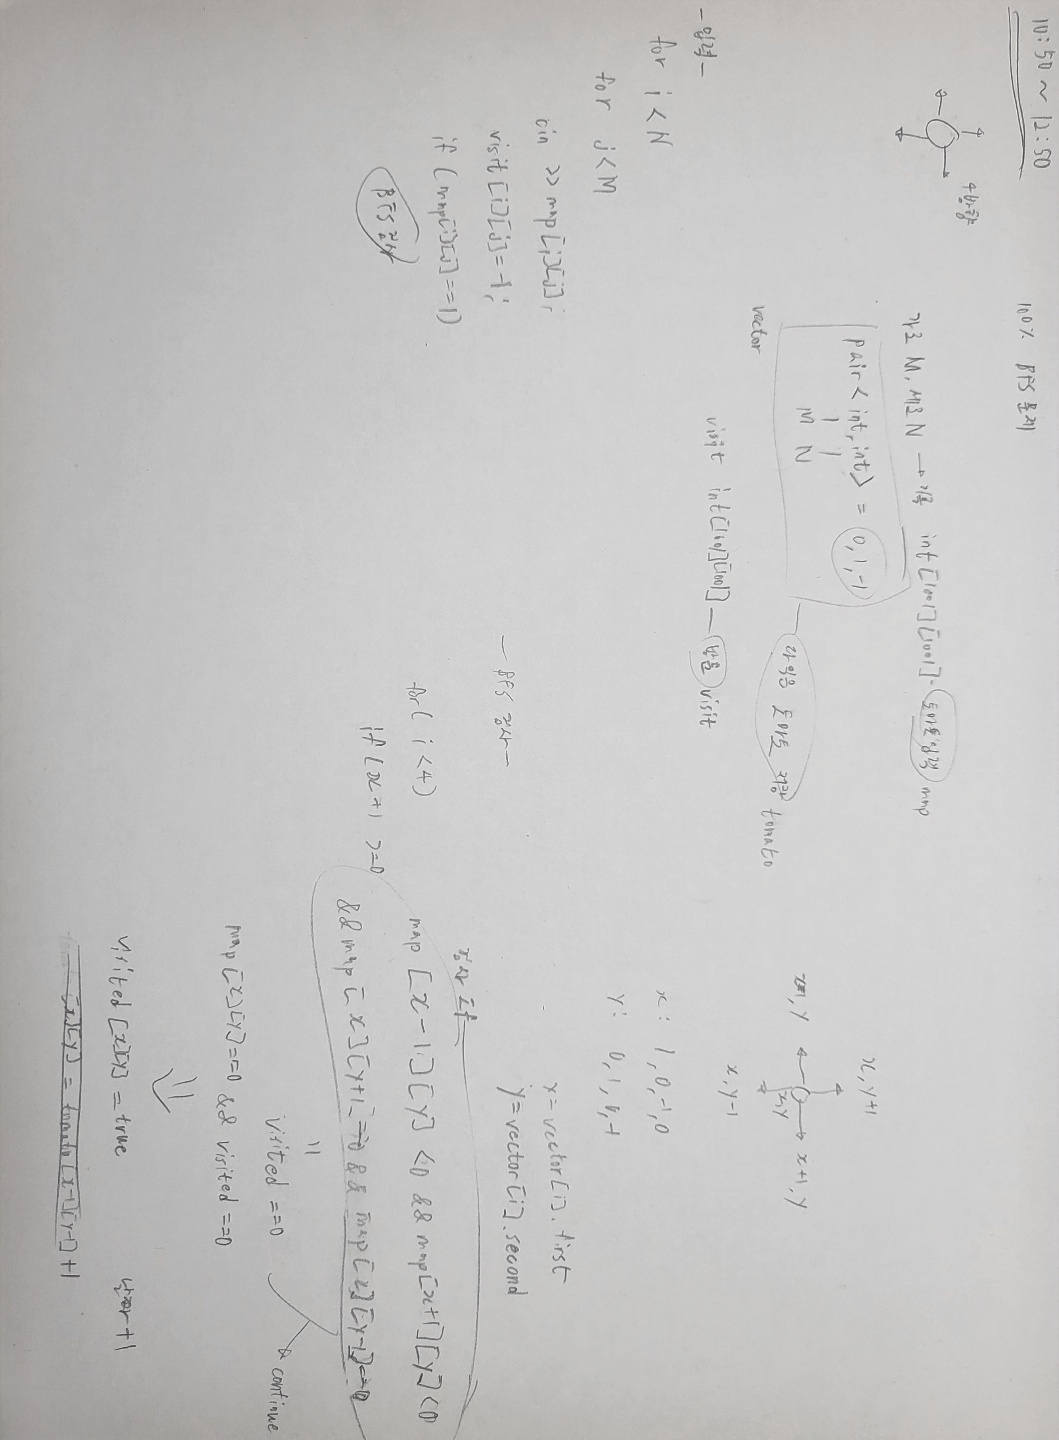 10:50 ~ 12:50
4방향
100% BFS 문제
가로 M, 세로 N → int[1001][1001] - 토마토 입력 map
pair<int, int> = 0, 1, -1
M N
vector
익은 토마토 저장 tomato
visit int[1001][1001] — visit
- 입력 -
for i < N
for j < M
cin >> map[i][j];
visit[i][j] = -1;
if (map[i][j] == 1)
BFS 검사
x, y+1
x, y
x+1, y
x, y-1
x: 1, 0, -1, 0
y: 0, 1, 0, -1
x = vector[i].first
y = vector[i].second
- BFS 검사 -
for( i < 4)
if (x+1 >= 0
검사
map [x-1][y] < 0 && map[x+1][y] < 0
&& map[x][y+1] == 0 && map[x][y-1] == 0
visited == 0
continue
map[x][y] == 0 && visited == 0
visited [x][y] = true
날짜 + 1
[x][y] = tomato[x-1][y-1] + 1